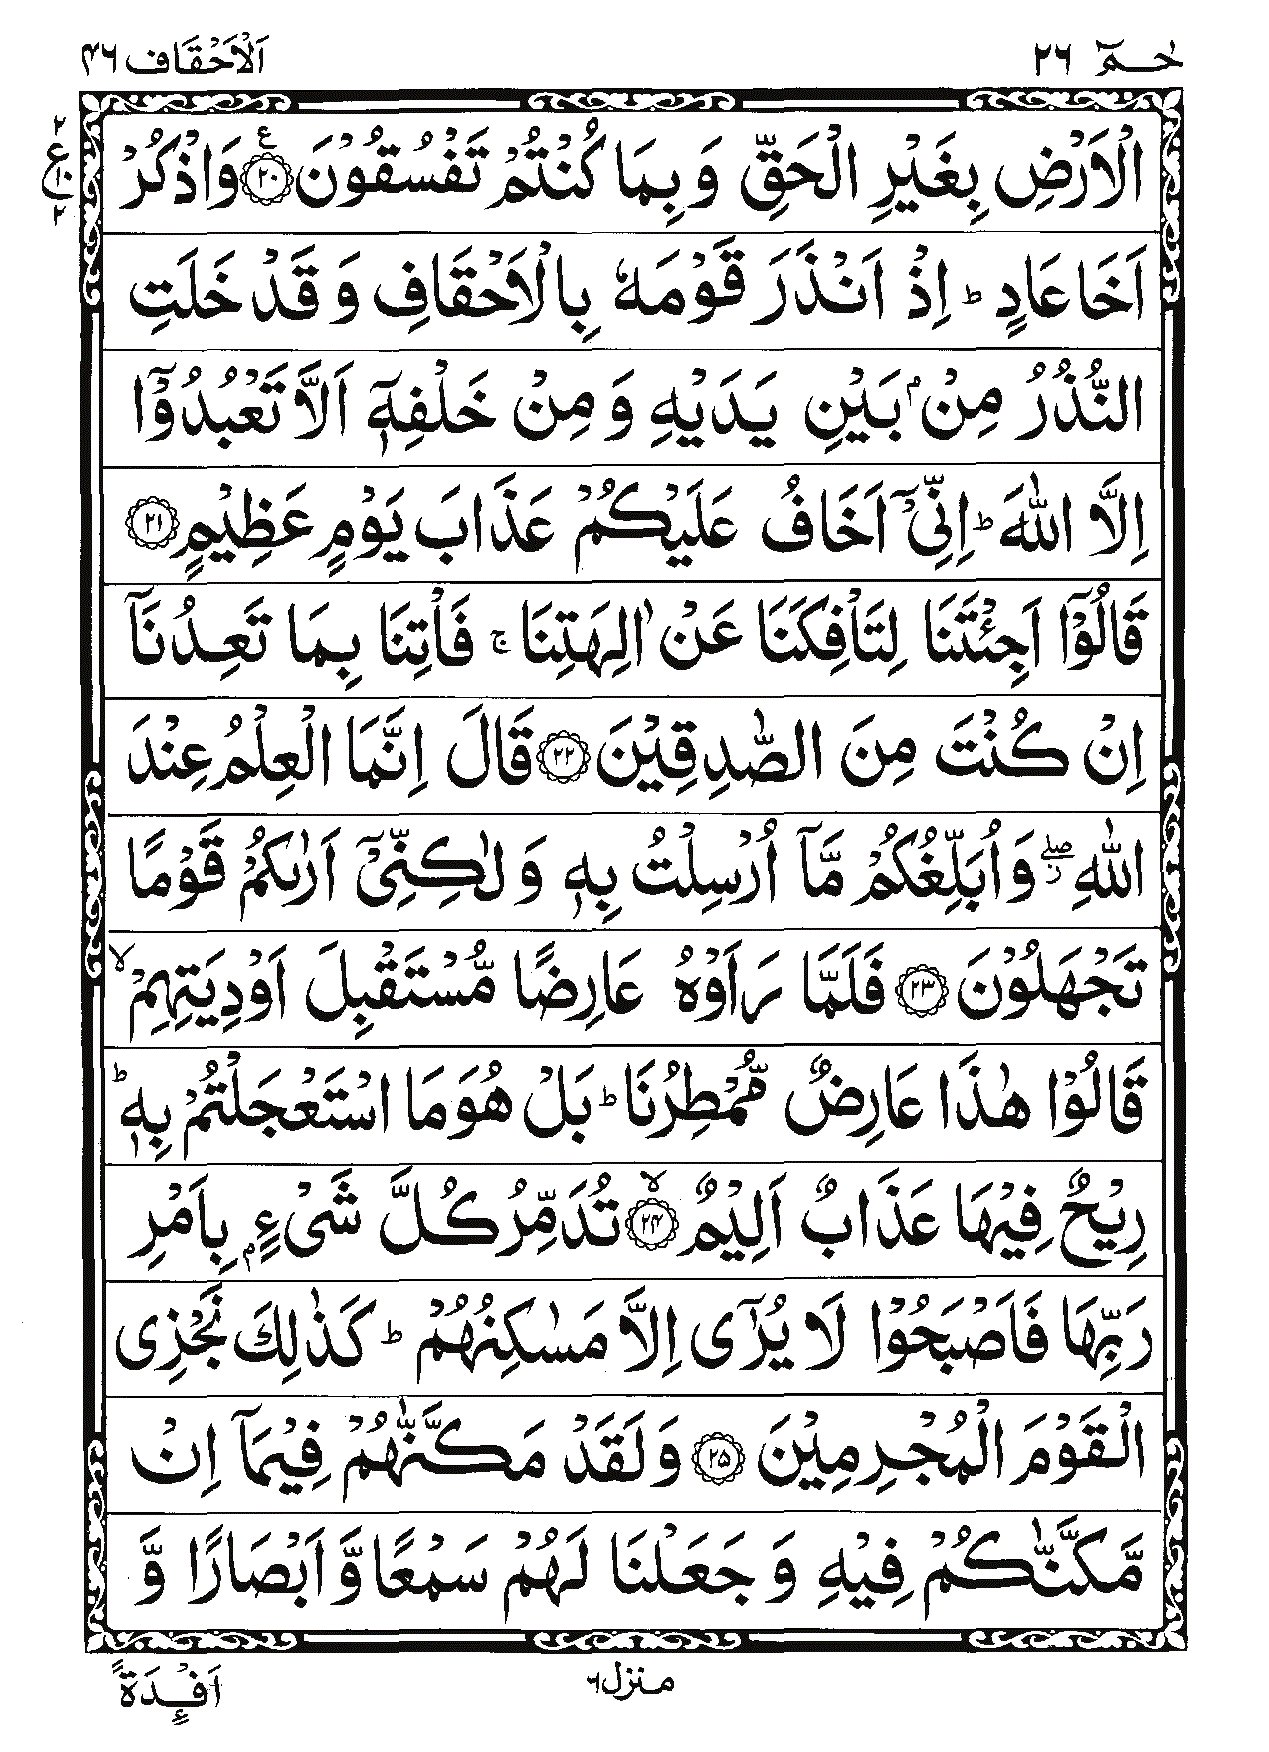 حٰمٓ ٢٦
اَلْاَحْقَاف ٤٦
٢
ع
١٠
٢
الْاَرْضِ بِغَيْرِ الْحَقِّ وَ بِمَا كُنْتُمْ تَفْسُقُوْنَ ﴿٢٠﴾ ع وَاذْكُرْ
اَخَا عَادٍ ؕ اِذْ اَنْذَرَ قَوْمَهٗ بِالْاَحْقَافِ وَ قَدْ خَلَتِ
النُّذُرُ مِنْۢ بَيْنِ يَدَيْهِ وَ مِنْ خَلْفِهٖۤ اَلَّا تَعْبُدُوْۤا
اِلَّا اللّٰهَ ؕ اِنِّيْۤ اَخَافُ عَلَيْكُمْ عَذَابَ يَوْمٍ عَظِيْمٍ ﴿٢١﴾
قَالُوْۤا اَجِئْتَنَا لِتَاْفِكَنَا عَنْ اٰلِهَتِنَا ۚ فَاْتِنَا بِمَا تَعِدُنَاۤ
اِنْ كُنْتَ مِنَ الصّٰدِقِيْنَ ﴿٢٢﴾ قَالَ اِنَّمَا الْعِلْمُ عِنْدَ
اللّٰهِ ۖ٘ وَ اُبَلِّغُكُمْ مَّاۤ اُرْسِلْتُ بِهٖ وَ لٰكِنِّيْۤ اَرٰىكُمْ قَوْمًا
تَجْهَلُوْنَ ﴿٢٣﴾ فَلَمَّا رَاَوْهُ عَارِضًا مُّسْتَقْبِلَ اَوْدِيَتِهِمْ ۙ
قَالُوْا هٰذَا عَارِضٌ مُّمْطِرُنَا ؕ بَلْ هُوَ مَا اسْتَعْجَلْتُمْ بِهٖ ؕ
رِيْحٌ فِيْهَا عَذَابٌ اَلِيْمٌ ﴿٢٤﴾ ۙ تُدَمِّرُ كُلَّ شَيْءٍۭ بِاَمْرِ
رَبِّهَا فَاَصْبَحُوْا لَا يُرٰۤى اِلَّا مَسٰكِنُهُمْ ؕ كَذٰلِكَ نَجْزِى
الْقَوْمَ الْمُجْرِمِيْنَ ﴿٢٥﴾ وَ لَقَدْ مَكَّنّٰهُمْ فِيْمَاۤ اِنْ
مَّكَّنّٰكُمْ فِيْهِ وَ جَعَلْنَا لَهُمْ سَمْعًا وَّ اَبْصَارًا وَّ
منزل ٦
اَفْـِٕدَةً